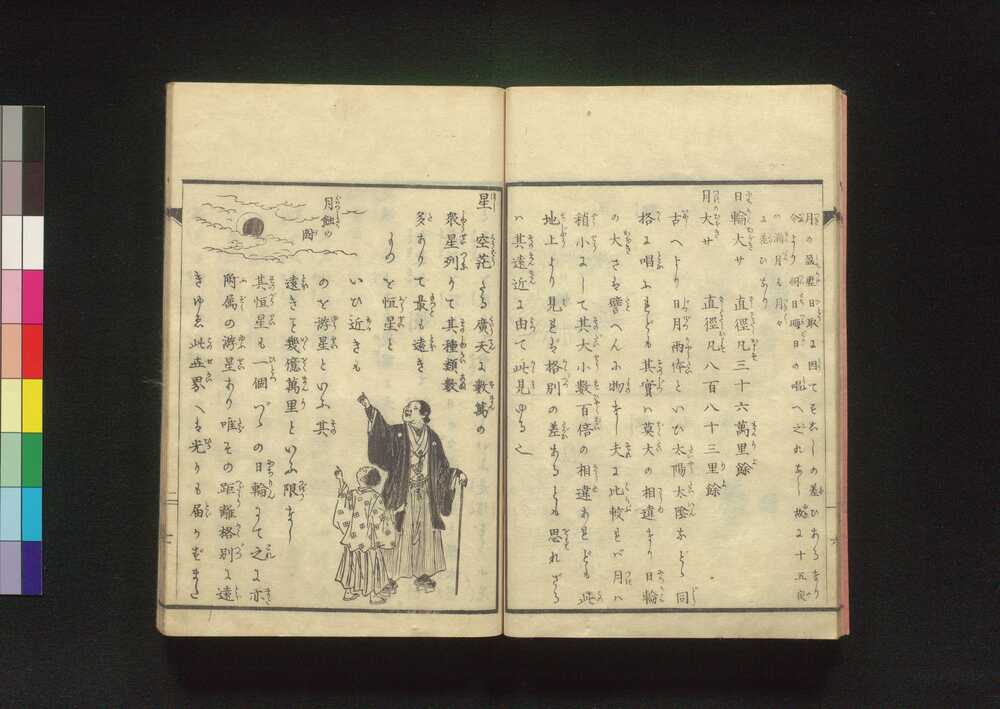 月の盈虧日取に因てすこしの差ひあるなり
今より何日晦日の唱へこれなし故に十五夜
の満月も月々
に差ひあり
日輪大サ 直徑凡三十六萬里餘
月大サ 直徑凡八百八十三里餘
古へより日月兩体といひ太陽太陰などゝ同
格に唱ふれども其實ハ莫大の相違なり日輪
の大さを譬へん小物なし夫に比較れバ月ハ
稍小にして其大小數百倍の相違あれども此
地上より見れバ格別の差あるとも思れざる
ハ其遠近に由て此見ゆる之
星 空茫たる廣天に數萬の
衆星列りて其種類數
多ありて最も遠き
ものを恒星と
いひ近きも
のを游星といふ其
遠きを幾億萬里といふ限なし
其恒星も一個づゝの日輪にて之に亦
附属の游星あり唯その距離格別に遠
きゆゑ此世界へは光りも届かずまた
月蝕の
圖